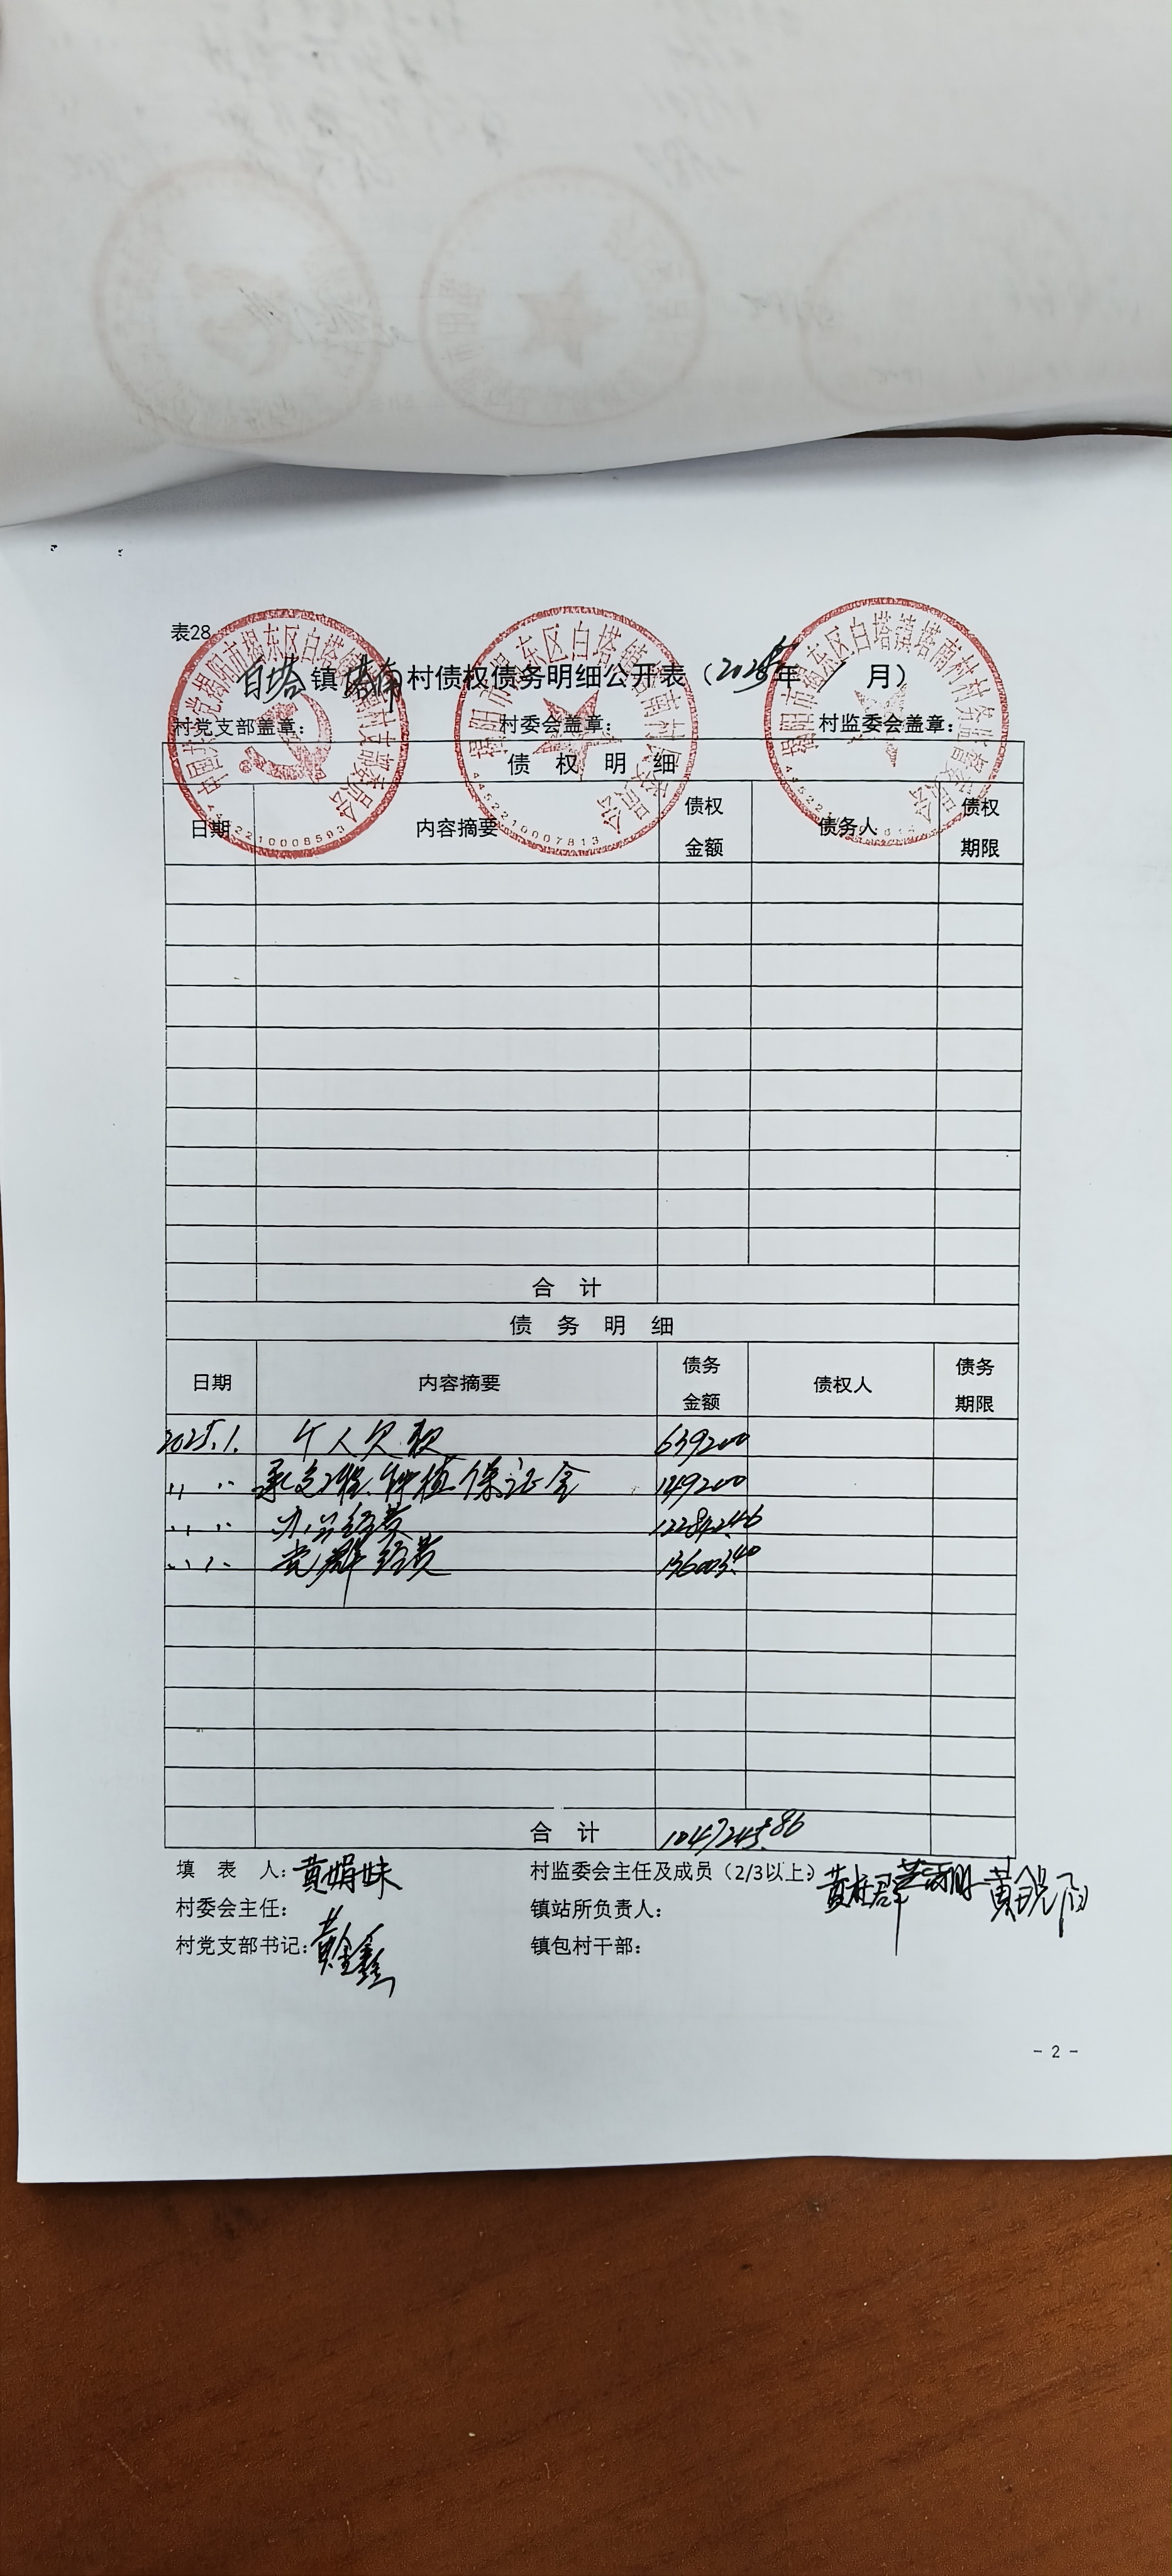 表28
白塔镇塔南村债权债务明细公开表（2025年1月）
村党支部盖章： 村委会盖章： 村监委会盖章：
中国共产党揭阳市揭东区白塔镇塔南村支部委员会
4452210008593
揭阳市揭东区白塔镇塔南村村民委员会
4452210007813
揭阳市揭东区白塔镇塔南村村务监督委员会
债权明细
日期 内容摘要 债权金额 债务人 债权期限
合计
债务明细
日期 内容摘要 债务金额 债权人 债务期限
2025.1. 个人欠款 639200
〃 〃 承包工程、种植保证金 149200
〃 〃 办公经费 122842.46
〃 〃 党群经费 136003.40
合计 1047245.86
填表人：黄娟妹 村监委会主任及成员（2/3以上）：黄桂群
村委会主任： 镇站所负责人：
村党支部书记：黄金鑫 镇包村干部：
- 2 -